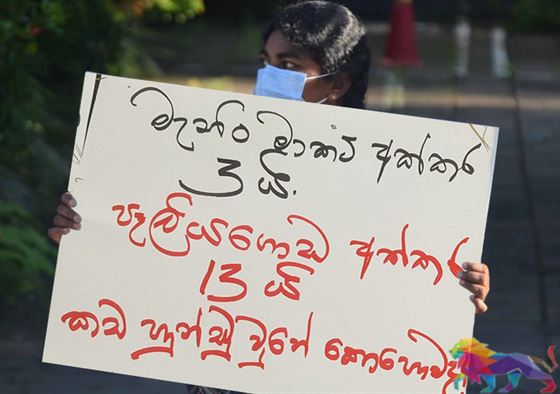 මැනිං මාකට් අක්කර
3 යි.
පෑලියගොඩ අක්කර
13 යි
කඩ හුන්ඩු වුනේ කොහොමද